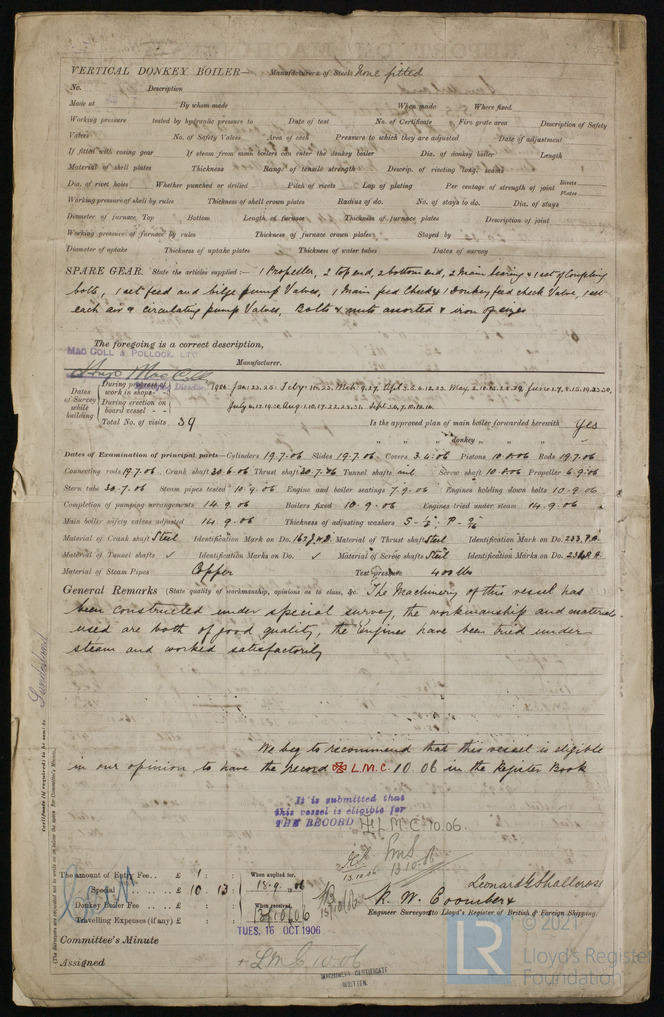 VERTICAL DONKEY BOILER— Manufacturers of Steel None fitted
No. Description
Made at By whom made When made Where fixed
Working pressure tested by hydraulic pressure to Date of test No. of Certificate Fire grate area Description of Safety
Valves No. of Safety Valves Area of each Pressure to which they are adjusted Date of adjustment
If fitted with easing gear If steam from main boilers can enter the donkey boiler Dia. of donkey boiler Length
Material of shell plates Thickness Range of tensile strength Descrip. of riveting long. seams
Dia. of rivet holes Whether punched or drilled Pitch of rivets Lap of plating Per centage of strength of joint Rivets Plates
Working pressure of shell by rules Thickness of shell crown plates Radius of do. No. of stays to do. Dia. of stays
Diameter of furnace Top Bottom Length of furnace Thickness of furnace plates Description of joint
Working pressure of furnace by rules Thickness of furnace crown plates Stayed by
Diameter of uptake Thickness of uptake plates Thickness of water tubes Dates of survey
SPARE GEAR. State the articles supplied:— 1 Propeller, 2 top end, 2 bottom end, 2 main bearing & 1 set of Coupling
bolts, 1 set feed and bilge pump Valves, 1 Main feed Check & 1 Donkey feed check Valve, 1 set
each air & circulating pump Valves, Bolts & nuts assorted & iron of sizes
The foregoing is a correct description,
MAC COLL & POLLOCK, LTD
Hugo MacColl Manufacturer.
Director
Dates of Survey while building
During progress of work in shops - - 1906. Jan. 23. 25. Feby. 10. 23. Mch. 9. 27. Apl. 3. 5. 6. 12. 23. May. 2. 10. 15. 23. 29. June 1. 7. 8. 15. 19. 23. 30.
During erection on board vessel - - - July 6. 12. 19. 20. Aug. 1. 10. 17. 22. 28. 31. Sept. 3. 6. 7. 10. 12. 14.
Total No. of visits 39 Is the approved plan of main boiler forwarded herewith Yes
" " " donkey " " "
Dates of Examination of principal parts—Cylinders 19.7.06 Slides 19.7.06 Covers 3.6.06 Pistons 10.8.06 Rods 19.7.06
Connecting rods 19.7.06 Crank shaft 30.6.06 Thrust shaft 30.7.06 Tunnel shafts nil Screw shaft 10.8.06 Propeller 6.9.06
Stern tube 30.7.06 Steam pipes tested 10.9.06 Engine and boiler seatings 7.9.06 Engines holding down bolts 10.9.06
Completion of pumping arrangements 14.9.06 Boilers fixed 10.9.06 Engines tried under steam 14.9.06
Main boiler safety valves adjusted 14.9.06 Thickness of adjusting washers
Material of Crank shaft Steel Identification Mark on Do. Material of Thrust shaft Steel Identification Mark on Do. 233 P.A.
Material of Tunnel shafts ✓ Identification Marks on Do. ✓ Material of Screw shafts Steel Identification Marks on Do.
Material of Steam Pipes Copper Test pressure 400 lbs
General Remarks (State quality of workmanship, opinions as to class, &c. The Machinery of this vessel has
been constructed under special survey, the workmanship and material
used are both of good quality, the Engines have been tried under
steam and worked satisfactorily
We beg to recommend that this vessel is eligible
in our opinion to have the record ✠ L.M.C. 10.06 in the Register Book
It is submitted that
this vessel is eligible for
THE RECORD ✠ L.M.C. 10.06.
13.10.06
13.10.06
Sunderland
Certificate (if required) to be sent to
(The Surveyors are requested not to write on or below the space for Committee's Minute.)
The amount of Entry Fee . . £ 1 : : When applied for,
Special . . . . £ 10 : 13 : 18.9.06
Donkey Boiler Fee . . . £ : : When received,
Travelling Expenses (if any) £ : : 13/10/06
13/10/06
Leonard G Shallcross
R. W. Coomber &
Engineer Surveyors to Lloyd's Register of British & Foreign Shipping.
TUES. 16 OCT 1906
Committee's Minute
Assigned + LMC 10.06
MACHINERY CERTIFICATE
WRITTEN.
LR
© 2021
Lloyd's Register
Foundation